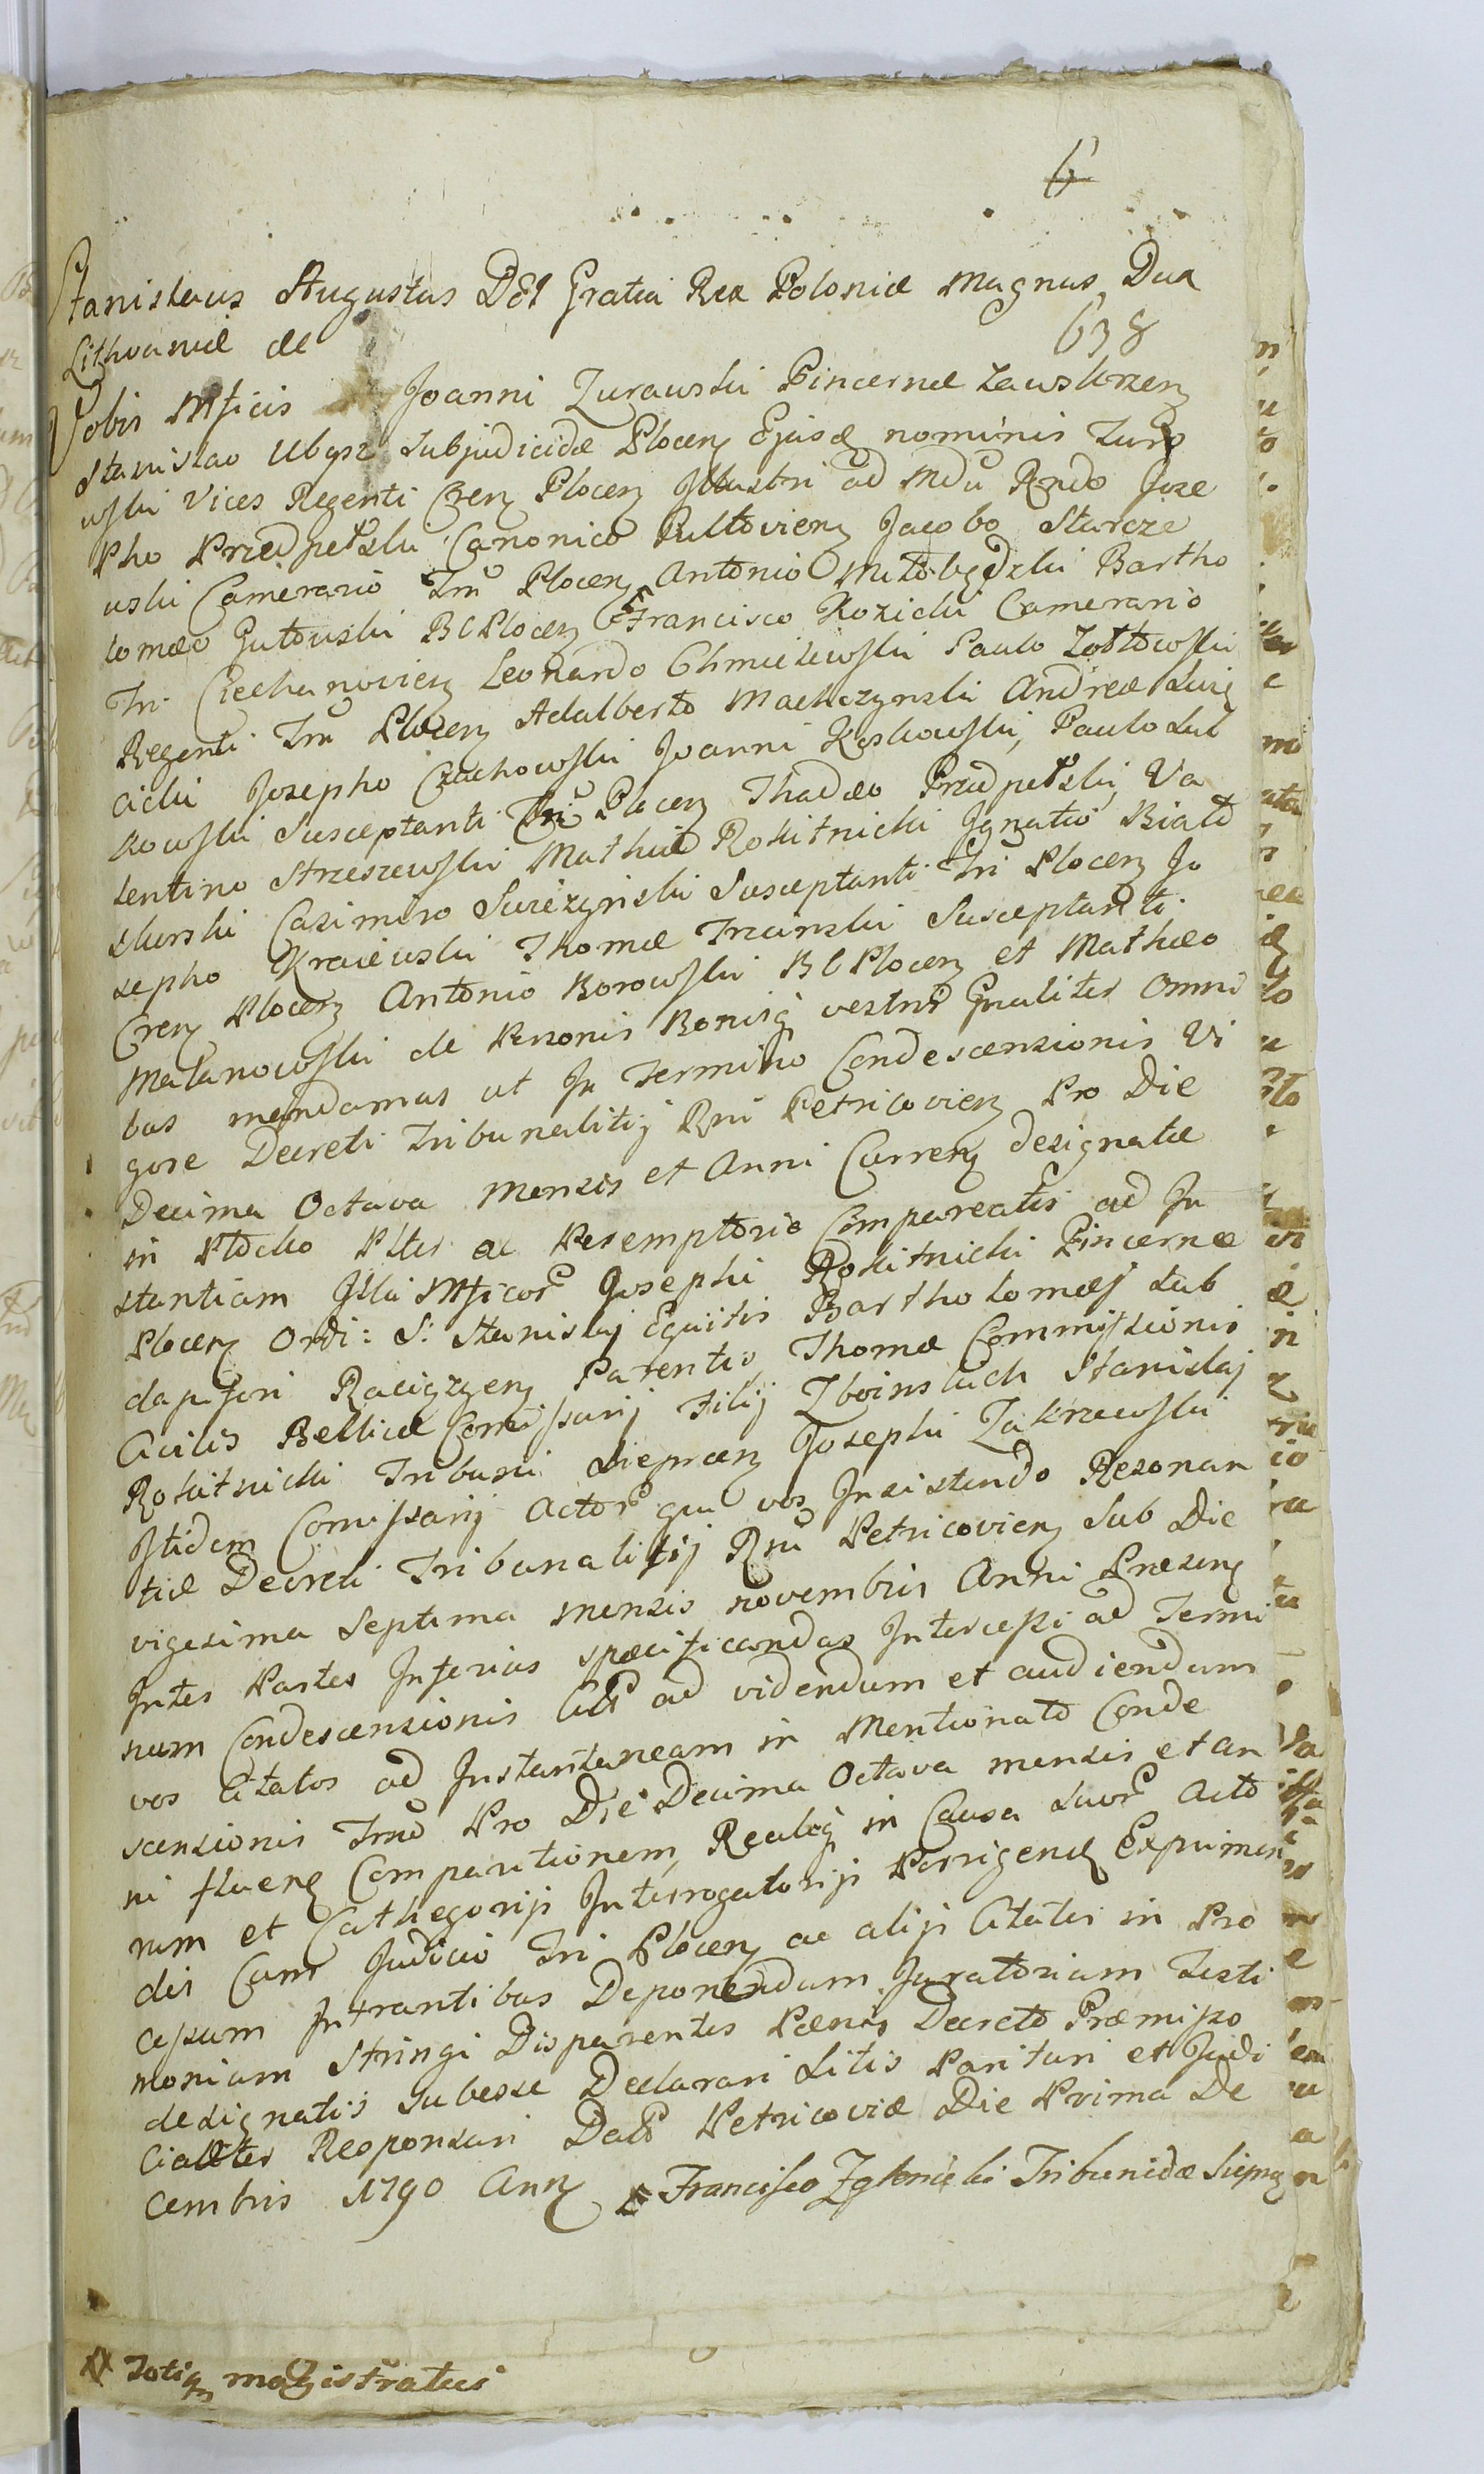 6
Stanislaus Augustus DEI Gratia Rex Poloniæ Magnus Dux
638
Lithvaniæ &c
Vobis Mficis Joanni Zurawski Pincernæ Zawskrzen
Stanislao Ubysz Subjudicidæ Plocen Ejusd nominis Zuro
wski Vices Regenti Cren Plocen Illustri ad Mdu Rndo Jose
pho Przedpełski Canonico Pultovien Jacobo Starcze
wski Camerario Tri Plocen Antonio Miłobędzki Bartho
lomæo Gutowski BC Plocen Francisco Kozicki Camerario
Tri Ciechanovien Leonardo Chmielewski Paulo Zołtowski
Regenti Tri Plocen Adalberto Machczynski Andreæ Swię
cicki Josepho Czachowski Joanni Koskowski, Paulo Lut
kowski Susceptanti Tri Plocen Thadæo Przedpełski, Va
lentino Strzeszewski Mathiæ Rokitnicki Ignatio Biało
skurski Casimiro Swiezynski Susceptanti Tri Plocen Jo
sepho Kraiewski Thomæ Trzcinski Susceptanti
Cren Plocen Antonio Borowski BC Plocen et Mathæo
Malanowski de Personis Bonisq vestris Gnaliter Omni
bus mandamus ut In Termino Condescensionis Vi
gore Decreti Tribunalitij Rni Petricovien Pro Die
Decima Octava Mensis et Anni Curren designatæ
in Płocko Plter ac Peremptorie Compareatis ad In
stantiam Illu Mficor Josephi Rokitnicki Pincernæ
Plocen Ordi: S: Stanislaj Equitis Bartholomæj Sub
dapiferi Raciązyen Parentis, Thomæ Commissionis
Civilis Bellicæ Comissarij Filij Zboinskich Stanislaj
Rokitnicki Tribuni Sieprcen Josephi Zakrzewski
Itidem Comissarij Actor qui vos Insistendo Resonan
tiæ Decreti Tribunalitij Rni Petricovien Sub Die
vigesima Septima mensis novembris Anni Præsen
Inter Partes Inferius specificandas Intercessi ad Termi
num Condescensionis Citt ad videndum et audiendum
vos Citatos ad Instantaneam in Mentionato Conde
scensionis Trno Pro Die Decima Octava mensis et an
ni fluen Comparitionem, Realeq in Causa suor Acto
rum et Cathegorijs Interrogatorijs Porrigend Exprimen
dis Cum Judicio Tri Plocen ac alijs Citatis in Pro
cessum Intrantibus Deponendum Juratorium Testi
monium Stringi Disparentes Pænis Decreto Præmisso
designatis Subesse Declarari Litis Parituri et Judi
cialiter Responsuri Datt Petricoviæ Die Prima De
cembris 1790 Ann Francisco Zglenicki Tribunidæ Sieprcen
Totiq magistratui